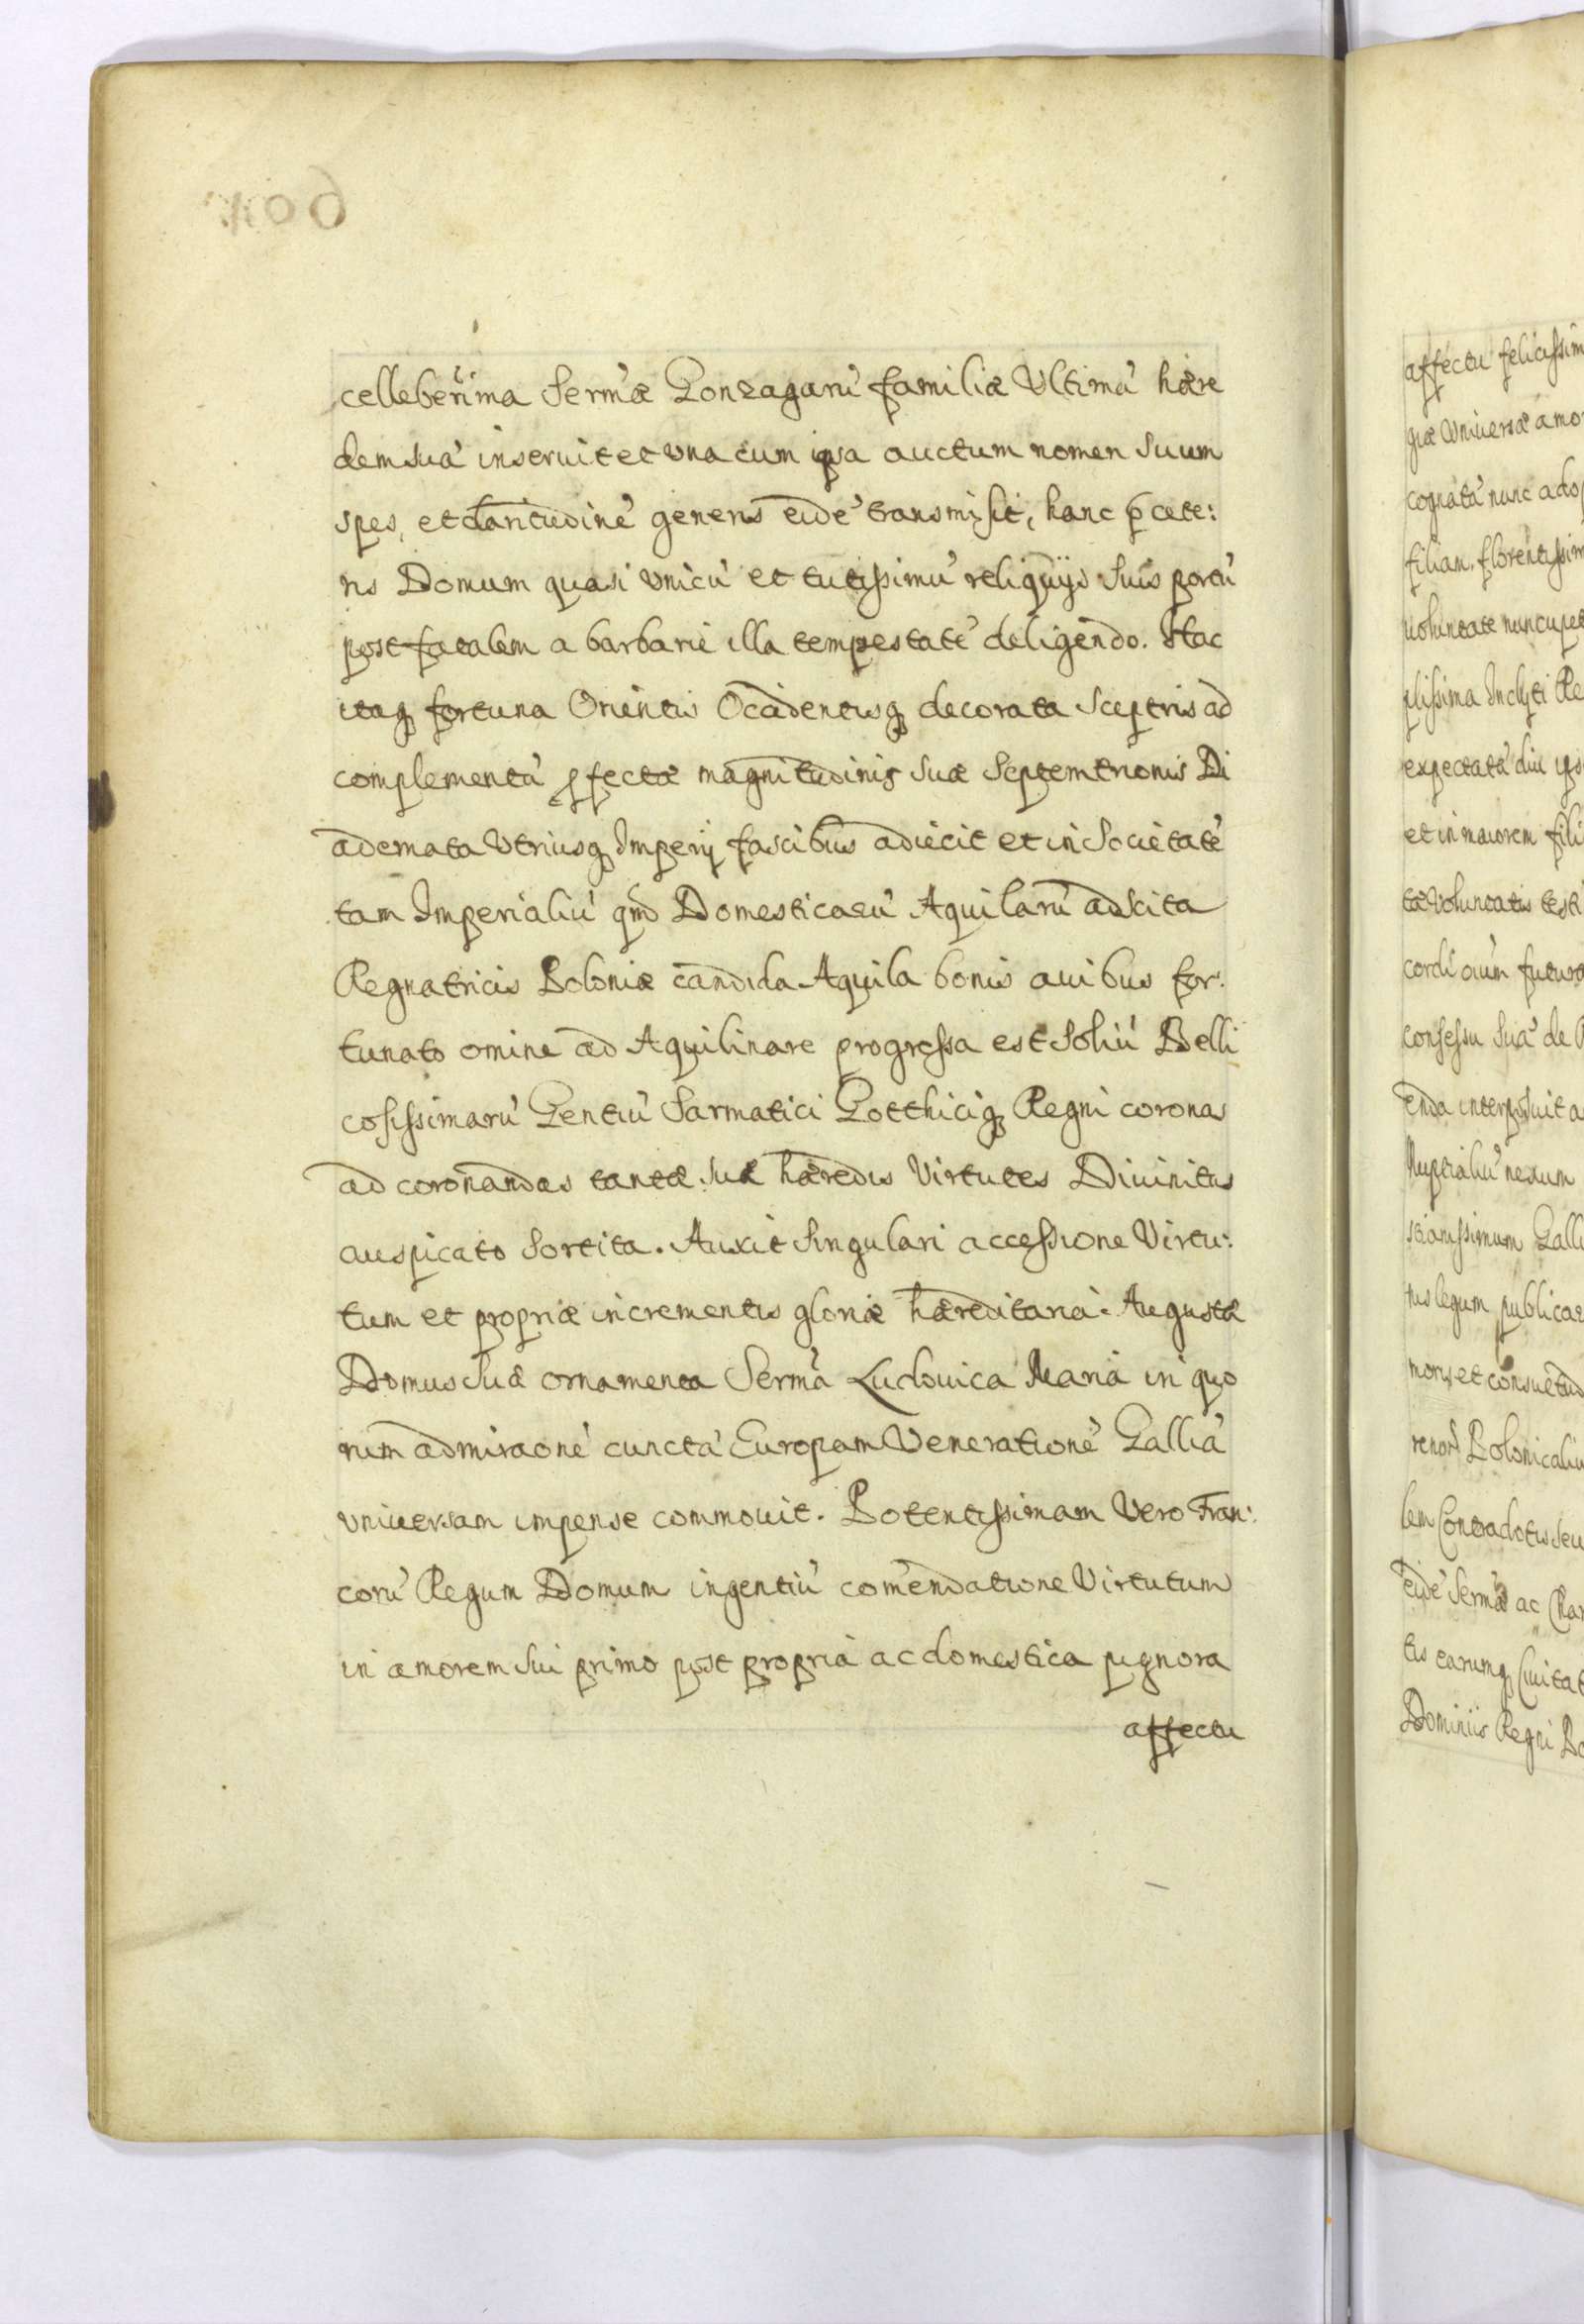 celleberrima Sermæ Gonzagarú familiæ Ultimá hære
dem suá inseruit et una cum ipsa auctum nomen suum
spes, et claritudiné generis eidé transmisit, hanc p cete:
ris Domum quasi unicú et tutissimú reliquijs suis portú
post fatalem a barbarie illa tempestaté deligendo. Hac
itaq fortuna Orientis Occidentisq decorata Sceptris ad
complementú pfectæ magnitudinis suæ Septemtrionis Di
ademata Utriusq Imperij fascibus adiecit et in Societaté
tam Imperialiú qm Domesticarú Aquilarú adscita
Regnatricis Poloniæ candida Aquila bonis auibus for:
tunato omine ad Aquilinare progressa est Soliú Belli
cosissimarú Gentiú Sarmatici Gotthiciq Regni coronas
ad coronandas tantæ suæ hæredis Virtutes Diuinitus
auspicato Sortita. Auxit Singulari accessione Virtu:
tum et propriæ incrementis gloriæ hæreditaria Augustæ
Domus suæ ornamenta Sermá Ludouica Maria in quo
rum admiraoné cunctá Europam Venerationé Galliá
uniuersam impense commouit. Potentissimam Vero Fran:
corú Regum Domum ingentiú comendatione Virtutum
in amorem sui primo post propria ac domestica pignora
affectu
affectu felicissim
giæ Uniuersæ amo
cognatá nunc adop
filiam, florentissim
uoluntate nuncupet
plissima Inclyti Re
expectatá diu ips
et in maiorem fili
tæ Voluntatis testi
cordi oium futura
consessu suá de
enda interposuit a
Nuptialiú nexum
stianissimum Galli
tus legum publicar
moris et consuetud
renord Polonicaliu
lem Contradotis seu
eidé Sermæ ac Char
tis earumq Ciuitat
Dominiis Regni Po